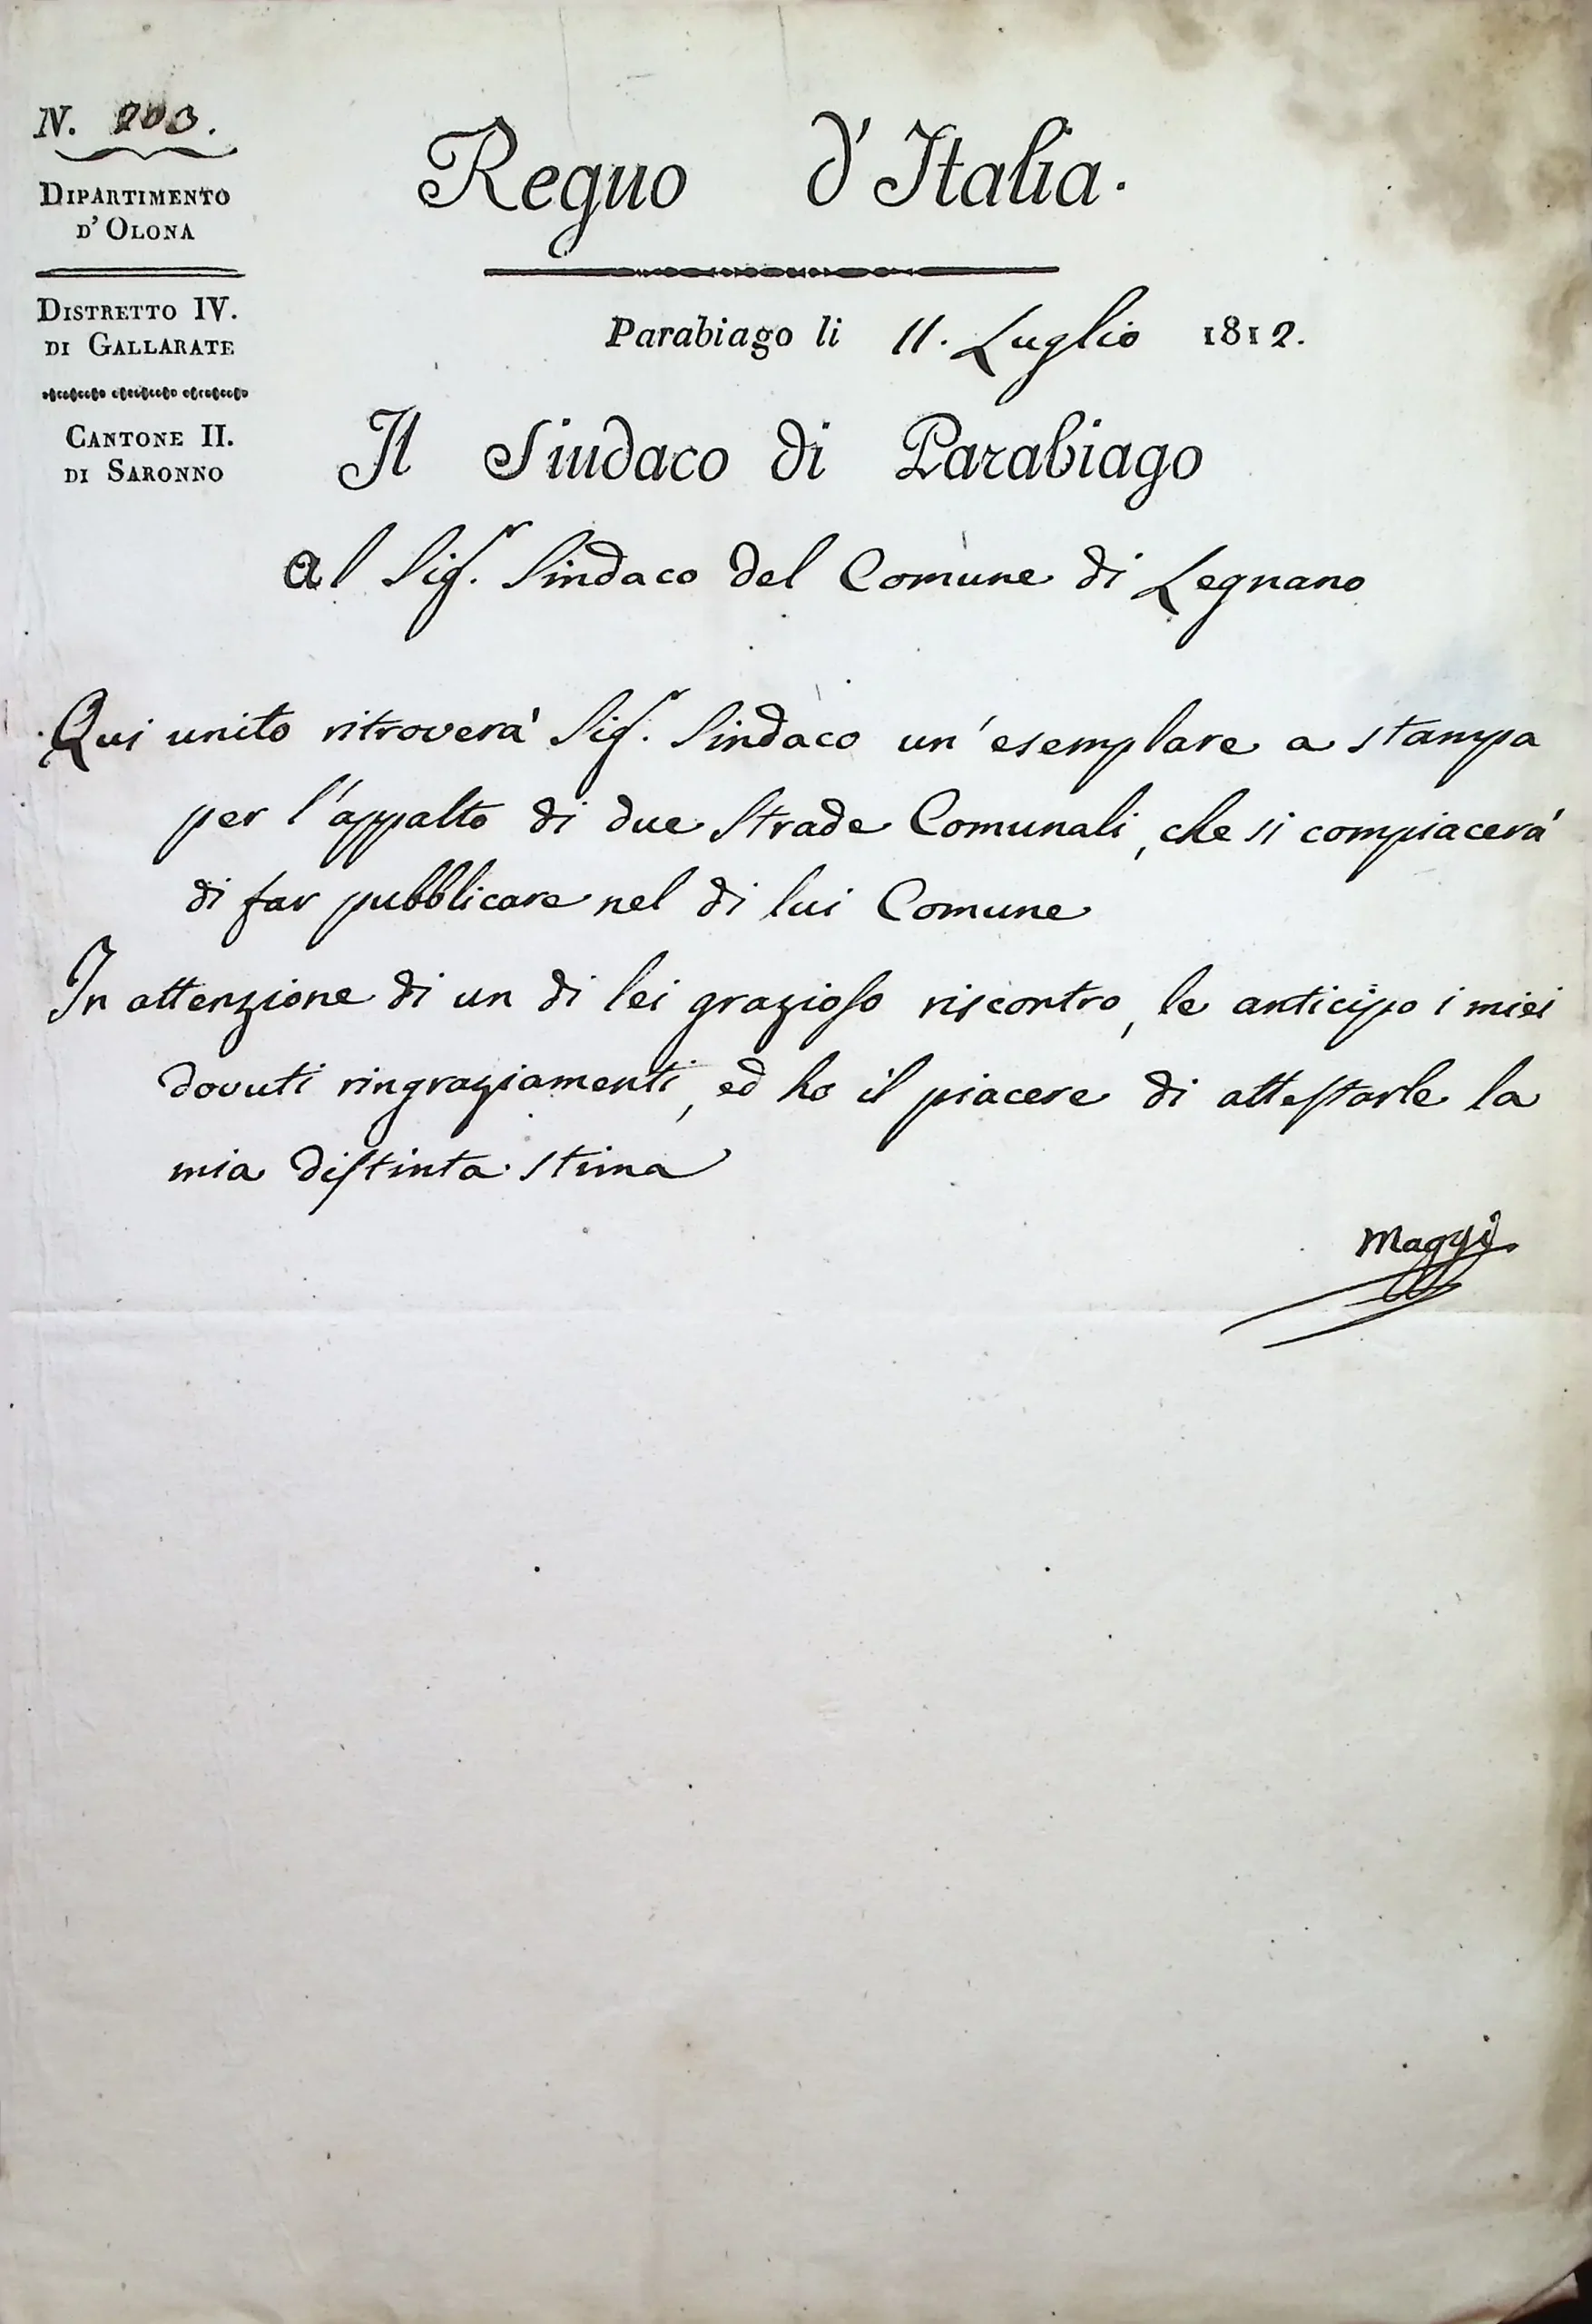 N. 203.
DIPARTIMENTO
D'OLONA
DISTRETTO IV.
DI GALLARATE
CANTONE II.
DI SARONNO
Regno d'Italia.
Parabiago li 11. Luglio 1812.
Il Sindaco di Parabiago
Al Sig.r Sindaco del Comune di Legnano
Qui unito ritroverà Sig.r Sindaco un'esemplare a stampa
per l'appalto di due Strade Comunali, che si compiacerà
di far pubblicare nel di lui Comune
In attenzione di un di lei grazioso riscontro, le anticipo i miei
dovuti ringraziamenti, ed ho il piacere di attestarle la
mia distinta stima
Maggi